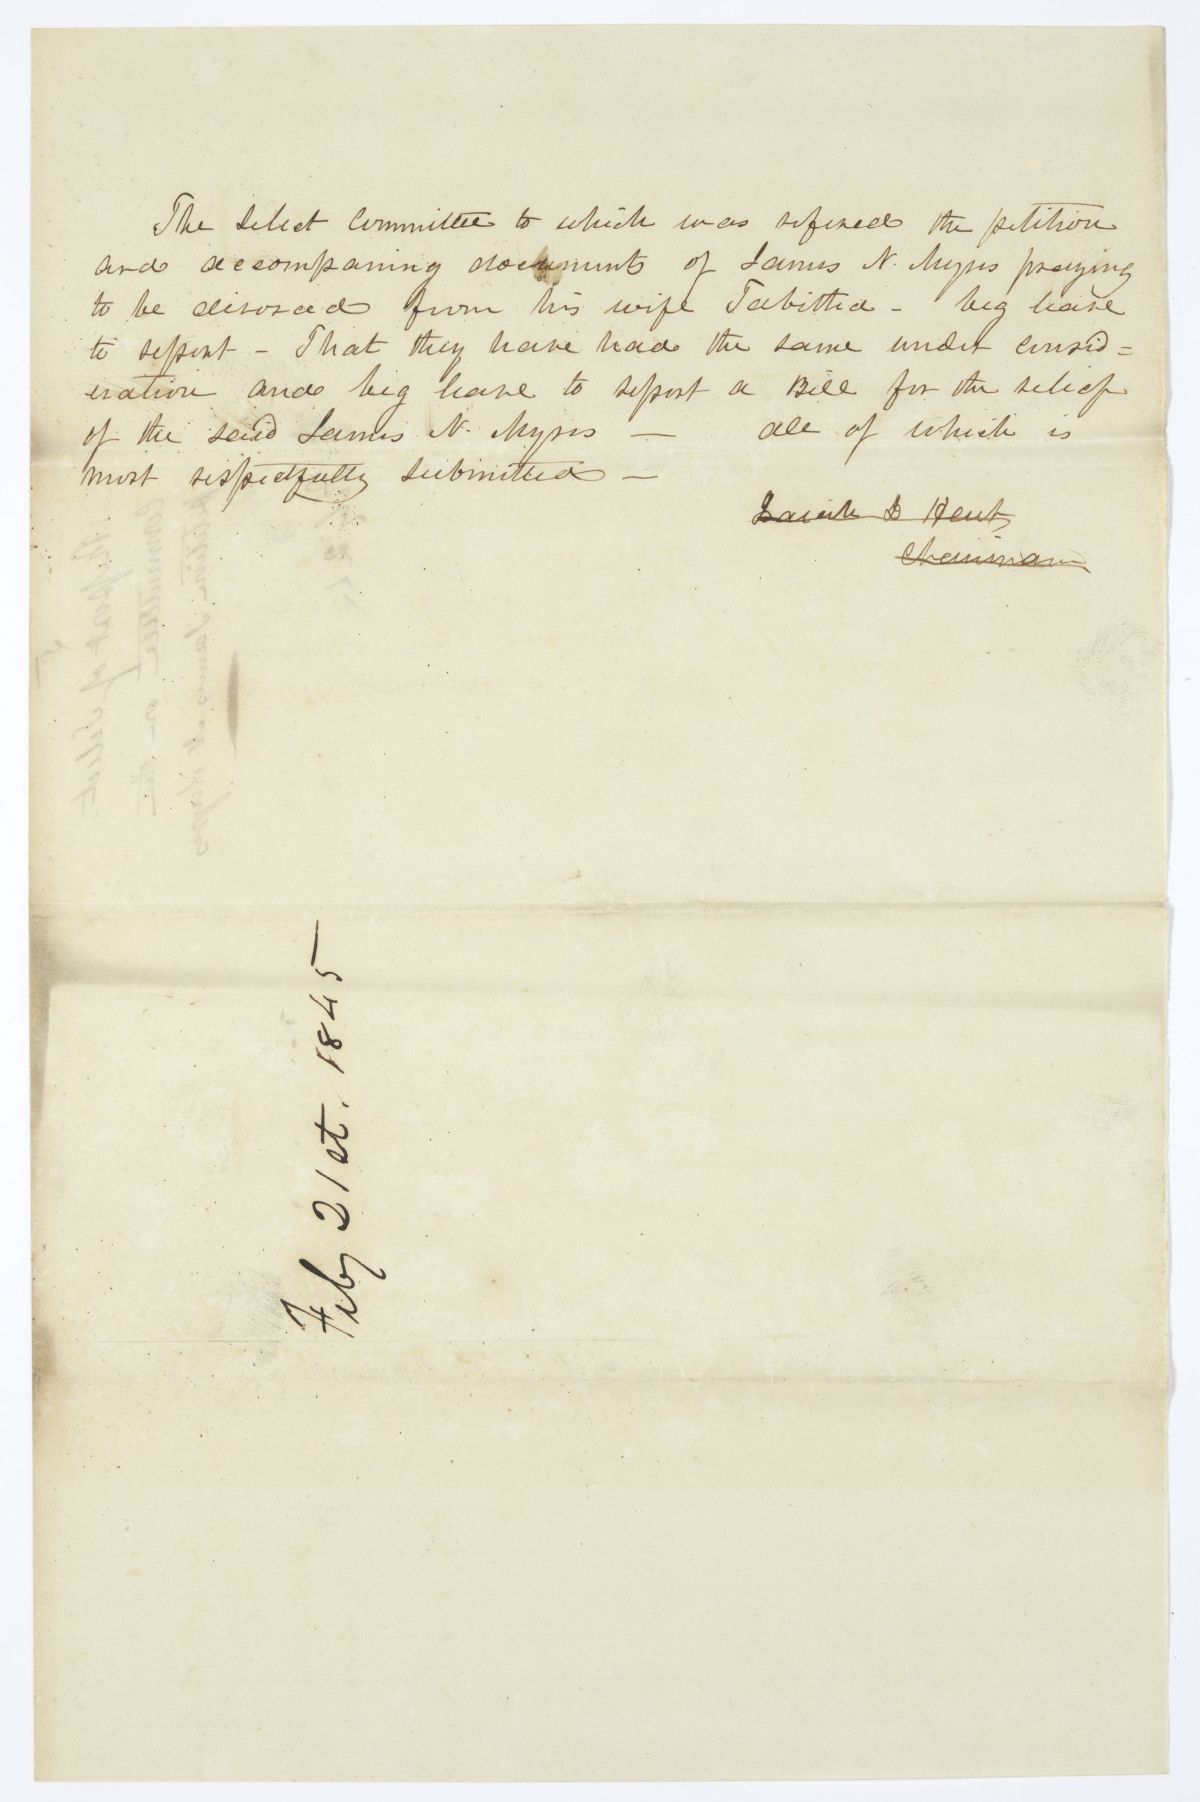 The Select Committee to which was refered the petition
and accompaning documents of James N. Myres praying
to be divorced from his wife Tabitha - beg leave
to report - That they have had the same under consid=
eration and beg leave to report a Bill for the relief
of the said James N. Myres — all of which is
most respectfully submitted —
Chairman
Feby 21st. 1845
Report of Select
Committee on the